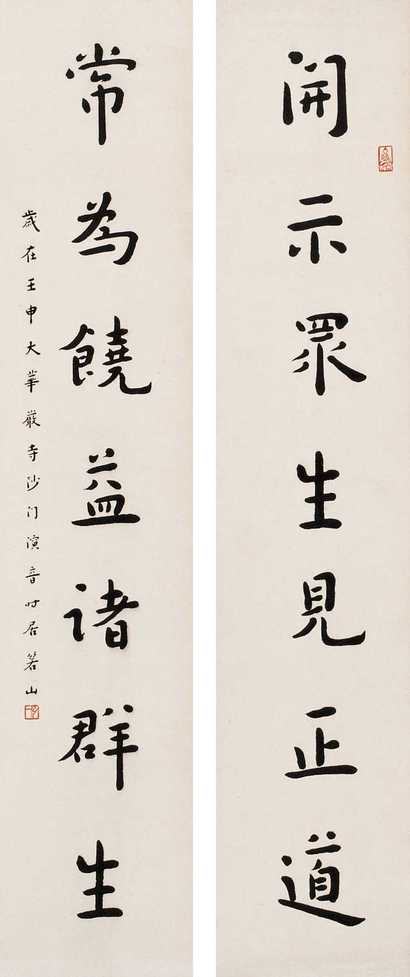 開示眾生見正道
常為饒益諸群生
歲在壬申大華嚴寺沙门演音時居箬山